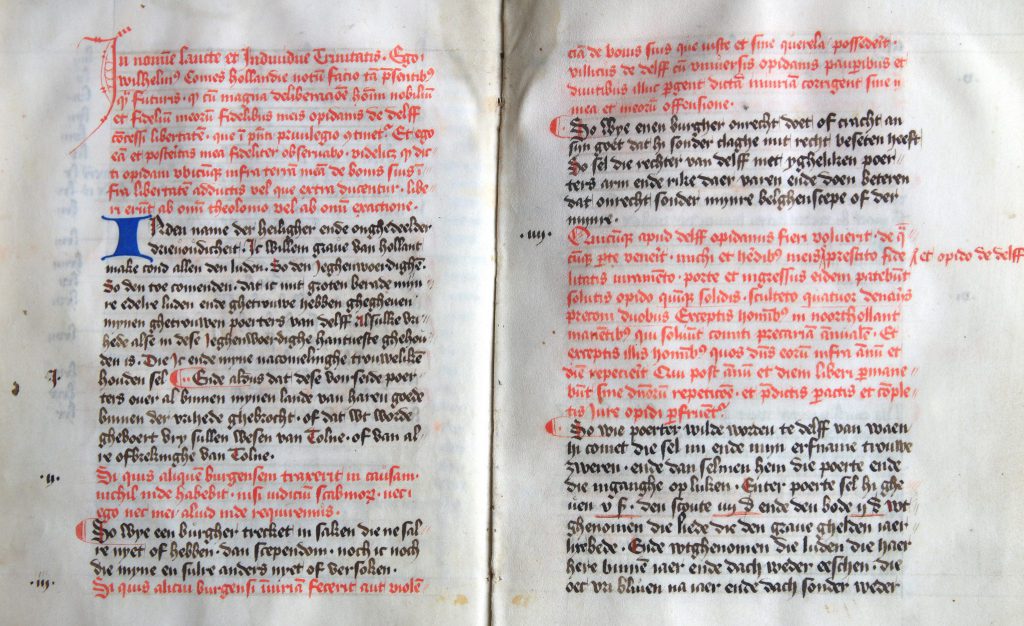 In nomine sancte et Individue Trinitatis. Ego
wilhelmus Comes Hollandie notum facio tam presentibus
quam futuris. quod cum magna deliberacione hominum nobilium
et fidelium meorum fidelibus meis opidanis de delff
concessi libertatem. que in presenti privilegio continetur. Et ego
eam et posteritas mea fideliter observabo. videlicet quod dic-
ti opidani ubicumque infra terram meam de bonis suis in-
fra libertatem adductis vel que extra ducentur. libe-
ri erunt ab omni theolonio vel ab omni exactione.
INden name der heiligher ende onghedeelder
drievoudicheit. Ic willem grave van hollant
make cond allen den luden. So den jeghenwoerdighen.
So den toe comenden. dat ic mit groten berade mijn-
re edelre luden ende ghetrouwe hebben ghegheven
mynen ghetrouwen poerters van delff alsulke vri-
hede alse in dese jeghenwoerdighe hantveste ghehou-
den is. Die ic ende myne nacomelinghe trouweliken
.I. houden sel Ende aldus dat dese vorseide poer-
ters over al binnen mynen lande van haren goede
binnen der vrihede ghebrocht. of dat wt worde
ghevoert vry sullen wesen van Tolne. of van al-
re ofbrekinghe van Tolne.
.II. Si quis aliquem burgensem traxerit in causam.
nichil inde habebit. nisi iudicium scabinorum. nec
ego nec mei aliud inde requiremus.
So wye een burgher trecket in saken die ne sal-
re nyet of hebben. dan scependom. noch ic noch
die myne en sulre anders nyet of versoken.
.III. Si quis alicui burgensi iniuriam fecerit aut violen-
ciam de bonis suis que iuste et sine querela possederit.
villicus de delff cum universis opidanis pauperibus et
divitibus illuc pergent dictam iniuriam corrigent sine
mea et meorum offensione.
So wye enen burgher onrecht doet of cracht an
sijn goet dat hi sonder claghe mit recht beseten heeft
So sel die rechter van delff met yghelikken poer-
ters arm ende rike daer varen ende doen beteren
dat onrecht sonder mynre belghenscepe of der
mynre.
.IIII. Quicumque apud delff opidanus fieri voluerit. de qua-
cumque parte venerit. michi et heredibus meis prestito fide- et opido de delff
litatis iuramento. porte et ingressus eidem patebunt
solutis opido quinque solidis. sculteto quatuor denariis
preconi duobus Exceptis hominibus in noorthollant
manentibus qui solvunt comiti precariam annualem. Et
exceptis illis hominibus quos dominus eorum infra annum et
diem repecierit Qui post annum et diem liberi permane-
bunt sine dominorum repeticione. et predictis peractis et comple-
tis iure opidi perfruentur.
So wie poerter wilde worden te delff van waen
hi comet die sel mi ende mijn erfname trouwe
zweren. ende dan selmen hem die poerte ende
die inganghe op luken. Enter poerte sel hi ghe-
ven v s. den scoute iiij d ende den bode ij d wt
ghenomen die liede die den grave ghelden iaer-
lixbede. Ende wtghenomen die luden die haer
here binnen iaer ende dach weder eeschen. die
oec vri bliven na iaer ende dach sonder weder